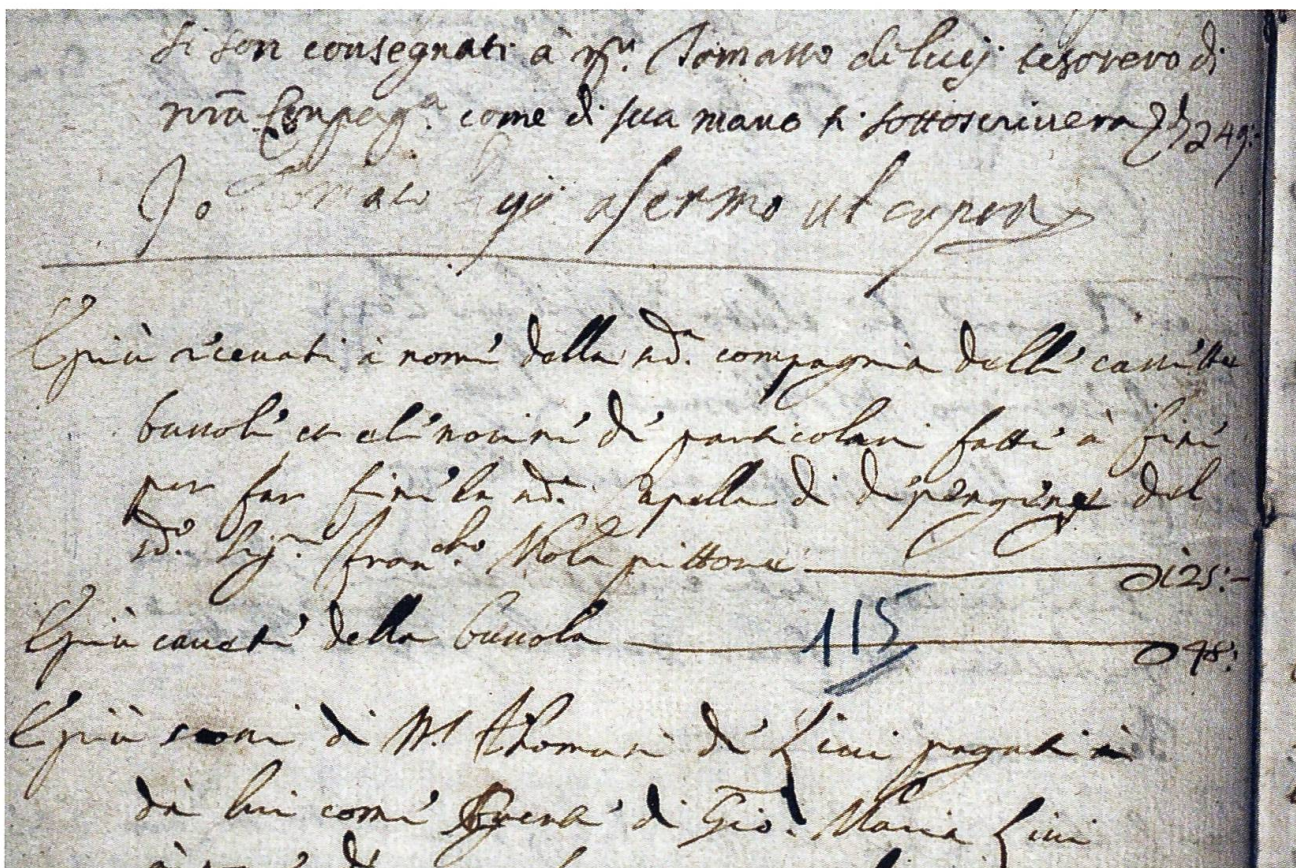 si son consegnati à m.r Tomasso de luij tesorero di
nrã Compag.a come di sua mano si sottoscriuera 249:-
Io Tomaso afermo ut supra
E più riceuuti à nome della sd.a compagnia delle cassette
bussole et elemosine de particolari fatte à fine
per far finire la sd.a Capella di dipengere del
sd.o Sig.r Fran.cho Mola pittore 125:-
E più cauati della bussola 48:
115
E più di M.r Thomaso de Luui pagati
da lui come di Gio. Maria Luui